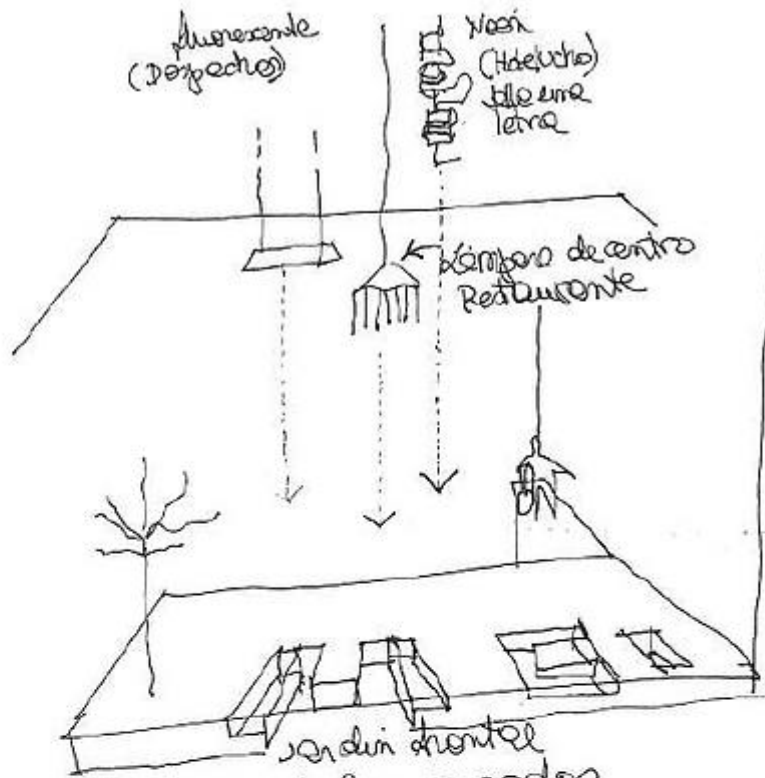 fluorexcente
(Despachos)
Neón
(Helecho)
sólo una
letra
Lámpara de centro
Restaurante
Jardín frontal